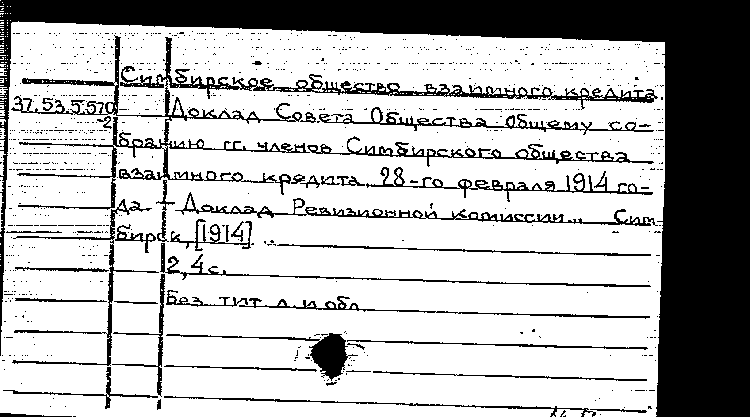 Симбирское общество взаимного кредита.
37.53.5.570
-2
Доклад Совета Общества Общему со-
бранию гг. членов Симбирского общества
взаимного кредита, 28-го февраля 1914 го-
да. — Доклад Ревизионной комиссии... Сим-
бирск, [1914] ..
2, 4 с.
Без тит. л. и обл.